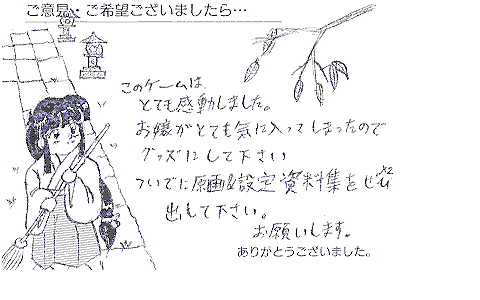 ご意見・ご希望ございましたら…
このゲームは
とても感動しました。
お嬢がとても気に入ってしまったので
グッズにして下さい
ついでに原画&設定資料集をぜひ
出して下さい。
お願いします。
ありがとうございました。